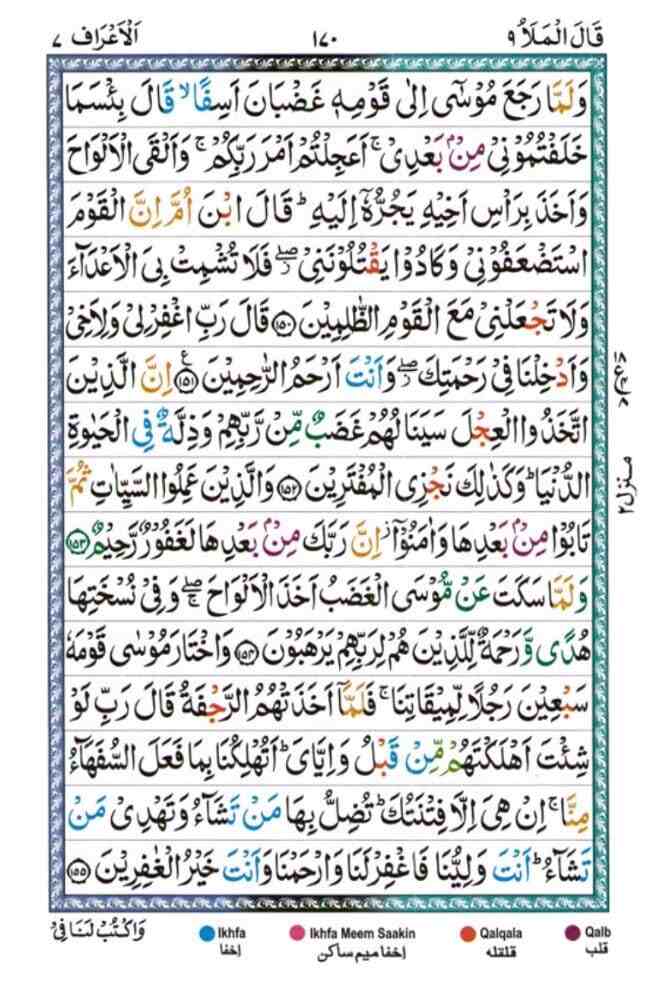 قَالَ الْمَلَاُ ٩ ١٧٠ اَلْاَعْرَاف ٧
وَلَمَّا رَجَعَ مُوْسٰٓى اِلٰى قَوْمِهٖ غَضْبَانَ اَسِفًا ۙ قَالَ بِئْسَمَا
خَلَفْتُمُوْنِيْ مِنْۢ بَعْدِيْ ۚ اَعَجِلْتُمْ اَمْرَ رَبِّكُمْ ۚ وَاَلْقَى الْاَلْوَاحَ
وَاَخَذَ بِرَاْسِ اَخِيْهِ يَجُرُّهٗٓ اِلَيْهِ ؕ قَالَ ابْنَ اُمَّ اِنَّ الْقَوْمَ
اسْتَضْعَفُوْنِيْ وَكَادُوْا يَقْتُلُوْنَنِيْ ۖ فَلَا تُشْمِتْ بِيَ الْاَعْدَآءَ
وَلَا تَجْعَلْنِيْ مَعَ الْقَوْمِ الظّٰلِمِيْنَ ۝١٥٠ قَالَ رَبِّ اغْفِرْ لِيْ وَلِاَخِيْ
وَاَدْخِلْنَا فِيْ رَحْمَتِكَ ۖ وَاَنْتَ اَرْحَمُ الرّٰحِمِيْنَ ۝١٥١ اِنَّ الَّذِيْنَ
اتَّخَذُوا الْعِجْلَ سَيَنَالُهُمْ غَضَبٌ مِّنْ رَّبِّهِمْ وَذِلَّةٌ فِي الْحَيٰوةِ
الدُّنْيَا ؕ وَكَذٰلِكَ نَجْزِي الْمُفْتَرِيْنَ ۝١٥٢ وَالَّذِيْنَ عَمِلُوا السَّيِّاٰتِ ثُمَّ
تَابُوْا مِنْۢ بَعْدِهَا وَاٰمَنُوْٓا ۡ اِنَّ رَبَّكَ مِنْۢ بَعْدِهَا لَغَفُوْرٌ رَّحِيْمٌ ۝١٥٣
وَلَمَّا سَكَتَ عَنْ مُّوْسَى الْغَضَبُ اَخَذَ الْاَلْوَاحَ ۖ وَفِيْ نُسْخَتِهَا
هُدًى وَّرَحْمَةٌ لِّلَّذِيْنَ هُمْ لِرَبِّهِمْ يَرْهَبُوْنَ ۝١٥٤ وَاخْتَارَ مُوْسٰى قَوْمَهٗ
سَبْعِيْنَ رَجُلًا لِّمِيْقَاتِنَا ۚ فَلَمَّآ اَخَذَتْهُمُ الرَّجْفَةُ قَالَ رَبِّ لَوْ
شِئْتَ اَهْلَكْتَهُمْ مِّنْ قَبْلُ وَاِيَّايَ ؕ اَتُهْلِكُنَا بِمَا فَعَلَ السُّفَهَآءُ
مِنَّا ۚ اِنْ هِيَ اِلَّا فِتْنَتُكَ ؕ تُضِلُّ بِهَا مَنْ تَشَآءُ وَتَهْدِيْ مَنْ
تَشَآءُ ؕ اَنْتَ وَلِيُّنَا فَاغْفِرْ لَنَا وَارْحَمْنَا وَاَنْتَ خَيْرُ الْغٰفِرِيْنَ ۝١٥٥
منزل ٢
وَاكْتُبْ لَنَا فِيْ
Ikhfa Ikhfa Meem Saakin Qalqala Qalb
اِخفا اِخفا میم ساکن قلقله قلب